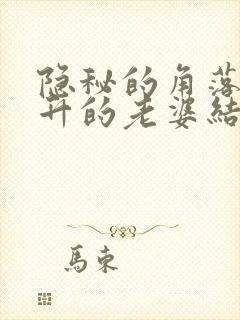 隐秘的角落
开的老婆結
馬東